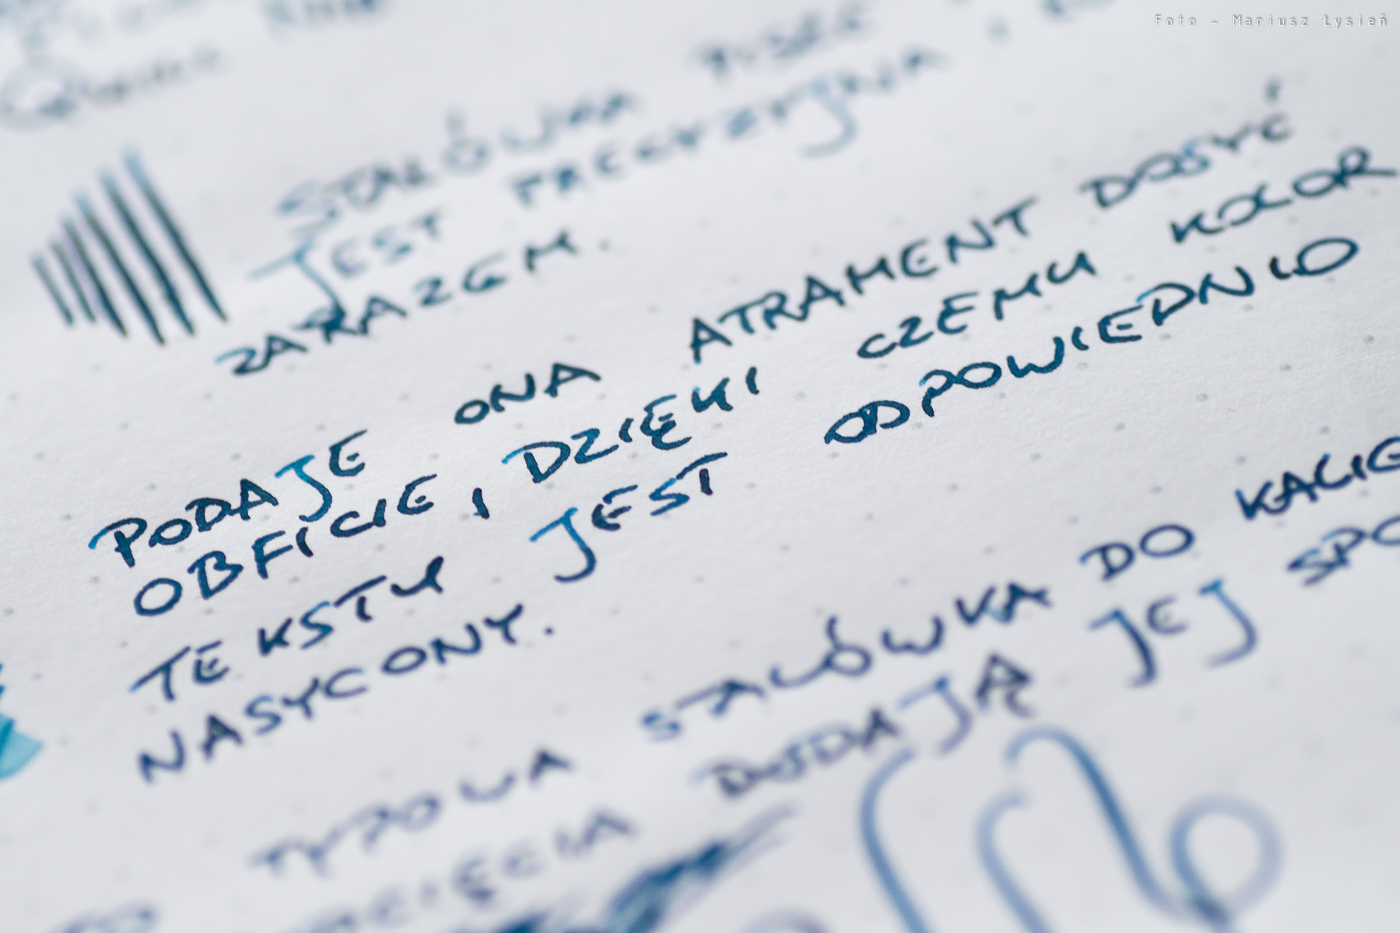 Foto - Mariusz Łysień
STALÓWKA PISZĘ
JEST PRECYZYJNA I
ZARAZEM.
PODAJE ONA ATRAMENT DOSYĆ
OBFICIE, DZIĘKI CZEMU KOLOR
TEKSTU JEST ODPOWIEDNIO
NASYCONY.
TYPOWA STALÓWKA DO KALIG
DODAJĄ JEJ SPO